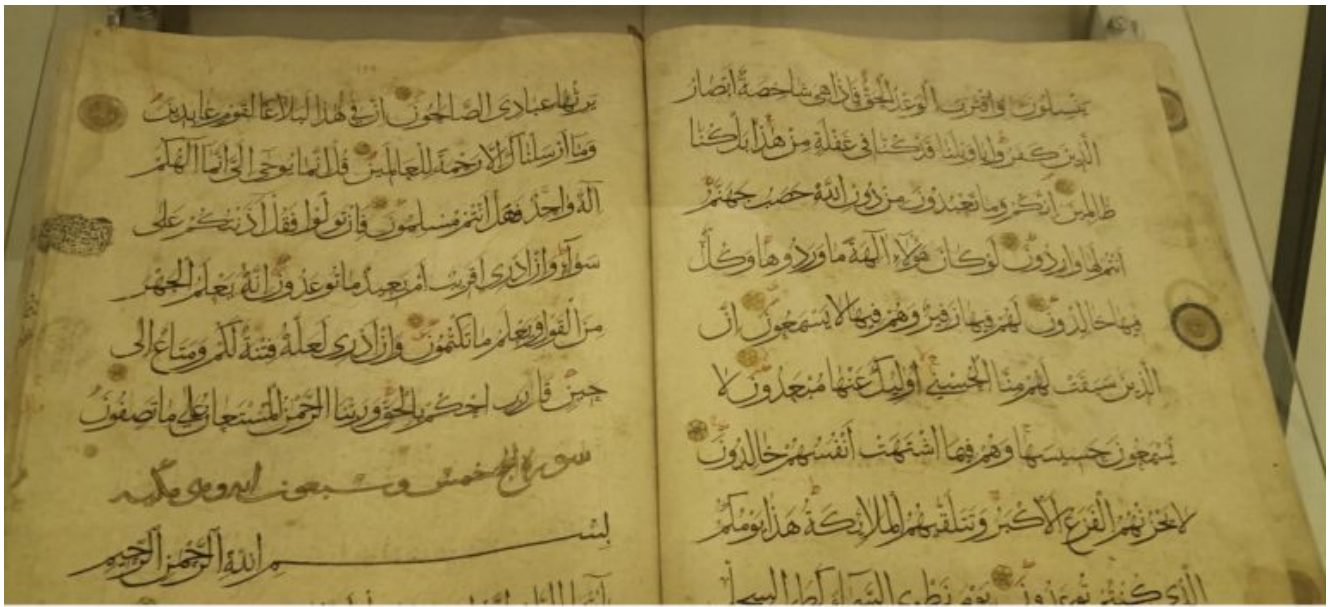 ينسلون واقترب الوعد الحق فاذا هي شاخصة ابصار
الذين كفروا يا ويلنا قد كنا في غفلة من هذا بل كنا
ظالمين انكم وما تعبدون من دون الله حصب جهنم
انتم لها واردون لو كان هؤلاء آلهة ما وردوها وكل
فيها خالدون لهم فيها زفير وهم فيها لا يسمعون ان
الذين سبقت لهم منا الحسنى اولئك عنها مبعدون لا
يسمعون حسيسها وهم فيما اشتهت انفسهم خالدون
لا يحزنهم الفزع الاكبر وتتلقيهم الملائكة هذا يومكم
الذي كنتم توعدون يوم نطوي السماء كطي السجل
يرثها عبادي الصالحون ان في هذا لبلاغا لقوم عابدين
وما ارسلناك الا رحمة للعالمين قل انما يوحى الي انما الهكم
اله واحد فهل انتم مسلمون فان تولوا فقل آذنتكم على
سواء وان ادري اقريب ام بعيد ما توعدون انه يعلم الجهر
من القول ويعلم ما تكتمون وان ادري لعله فتنة لكم ومتاع الى
حين قل رب احكم بالحق وربنا الرحمن المستعان على ما تصفون
سورة الحج خمس وسبعون اية وهي مكية
بسم الله الرحمن الرحيم